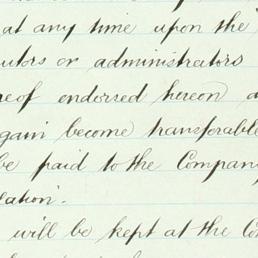 at any time upon the
utors or administrators
reof endorsed hereon a
gain become transferable
be paid to the Company
lation.
will be kept at the Co